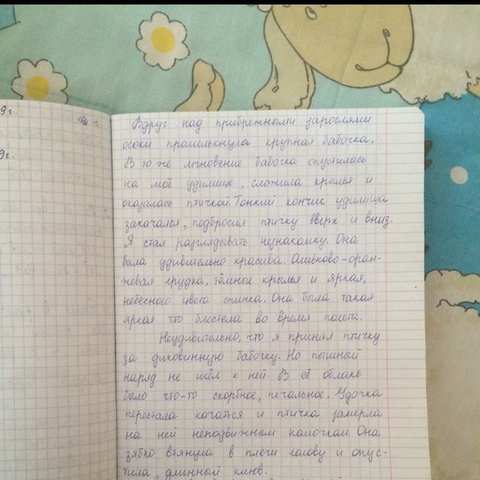 9г
9г.
Вдруг над прибрежными зарослями
осоки промелькнула крупная бабочка.
В то же мгновение бабочка опустилась
на моё удилище, сложила крылья и
оказалась птичкой. Тонкий кончик удилища
закачался, подбросил птичку вверх и вниз.
Я стал разглядывать незнакомку. Она
была удивительно красива. Оливково-оран-
жевая грудка, тёмные крылья и яркая,
небесного цвета спинка. Она была такая
яркая что блестела во время полёта.
Неудивительно, что я принял птичку
за диковинную бабочку. Но пышный
наряд не шёл к ней. В её облике
было что-то скорбное, печальное. Удочка
перестала качаться и птичка замерла
на ней неподвижным комочком. Она
зябко втянула в плечи голову и опус-
тила длинный клюв.